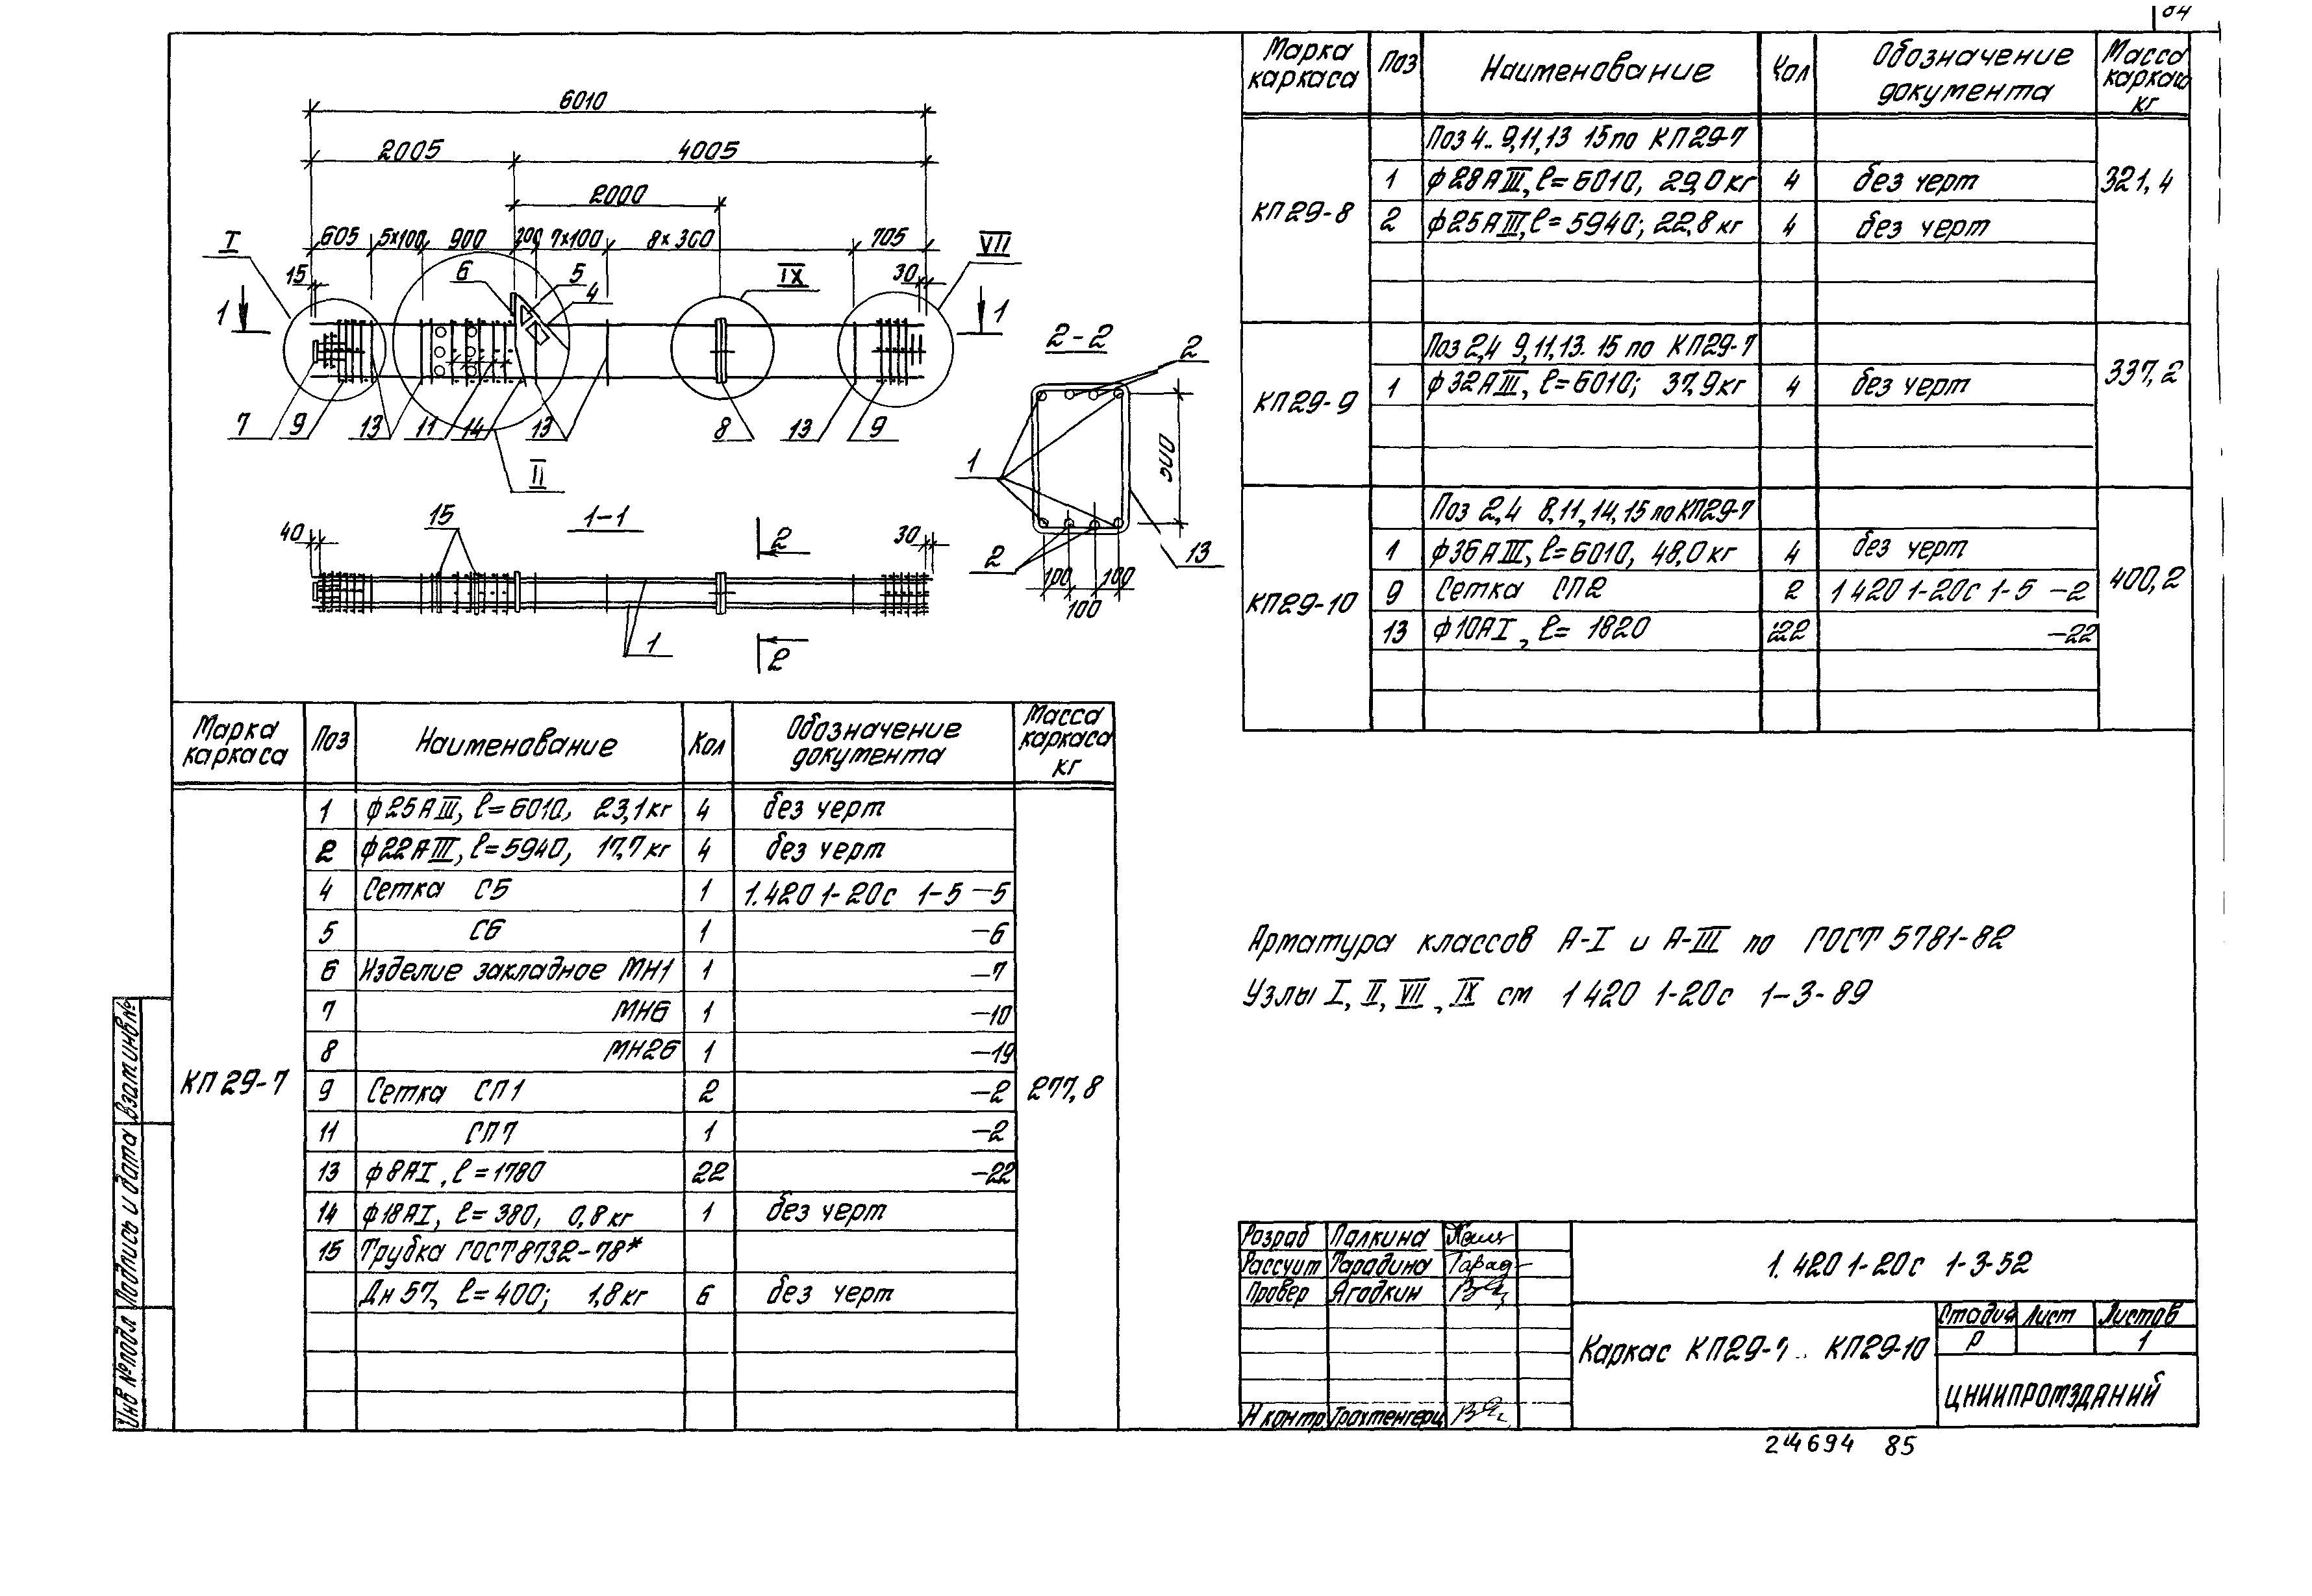 84
6010
2005 4005
2000
605 5х100 900 200 7х100 8х300 705
I 6 5 IX VII
15 4 30
1 1
7 9 13 11 14 13 8 13 9
II
2-2
2
1
500
2 13
100 100
100
1-1
40 15 2 30
1 2
Марка каркаса Поз Наименование Кол Обозначение документа Масса каркаса кг
КП 29-7 277,8
1 ф25АIII, ℓ=6010, 23,1кг 4 без черт
2 ф22АIII, ℓ=5940, 17,7кг 4 без черт
4 Сетка С5 1 1.420 1-20с 1-5 -5
5 С6 1 -6
6 Изделие закладное МН1 1 -7
7 МН6 1 -10
8 МН26 1 -19
9 Сетка СП1 2 -2
11 СП7 1 -2
13 ф8АI, ℓ=1780 22 -22
14 ф18АI, ℓ=380, 0,8кг 1 без черт
15 Трубка ГОСТ8732-78*
Дн57, ℓ=400; 1,8кг 6 без черт
Марка каркаса Поз Наименование Кол Обозначение документа Масса каркаса кг
КП29-8 321,4
Поз 4.. 9,11,13 15 по КП29-7
1 ф28АIII, ℓ=6010, 29,0кг 4 без черт
2 ф25АIII, ℓ=5940; 22,8кг 4 без черт
КП29-9 337,2
Поз 2,4 9,11,13. 15 по КП29-7
1 ф32АIII, ℓ=6010; 37,9кг 4 без черт
КП29-10 400,2
Поз 2,4 8,11,14,15 по КП29-7
1 ф36АIII, ℓ=6010, 48,0кг 4 без черт
9 Сетка СП2 2 1 420 1-20с 1-5 -2
13 ф10АI, ℓ=1820 22 -22
Арматура классов А-I и А-III по ГОСТ 5781-82
Узлы I, II, VII, IX см 1 420 1-20с 1-3-89
Разраб Палкина
Рассчит Тарадина
Провер Ягодкин
Н контр Трахтенгерц
1. 420 1-20с 1-3-52
Каркас КП29-7.. КП29-10
Стадия Лист Листов
Р 1
ЦНИИПРОМЗДАНИЙ
24694 85
Инв № подл Подпись и дата Взам инв №